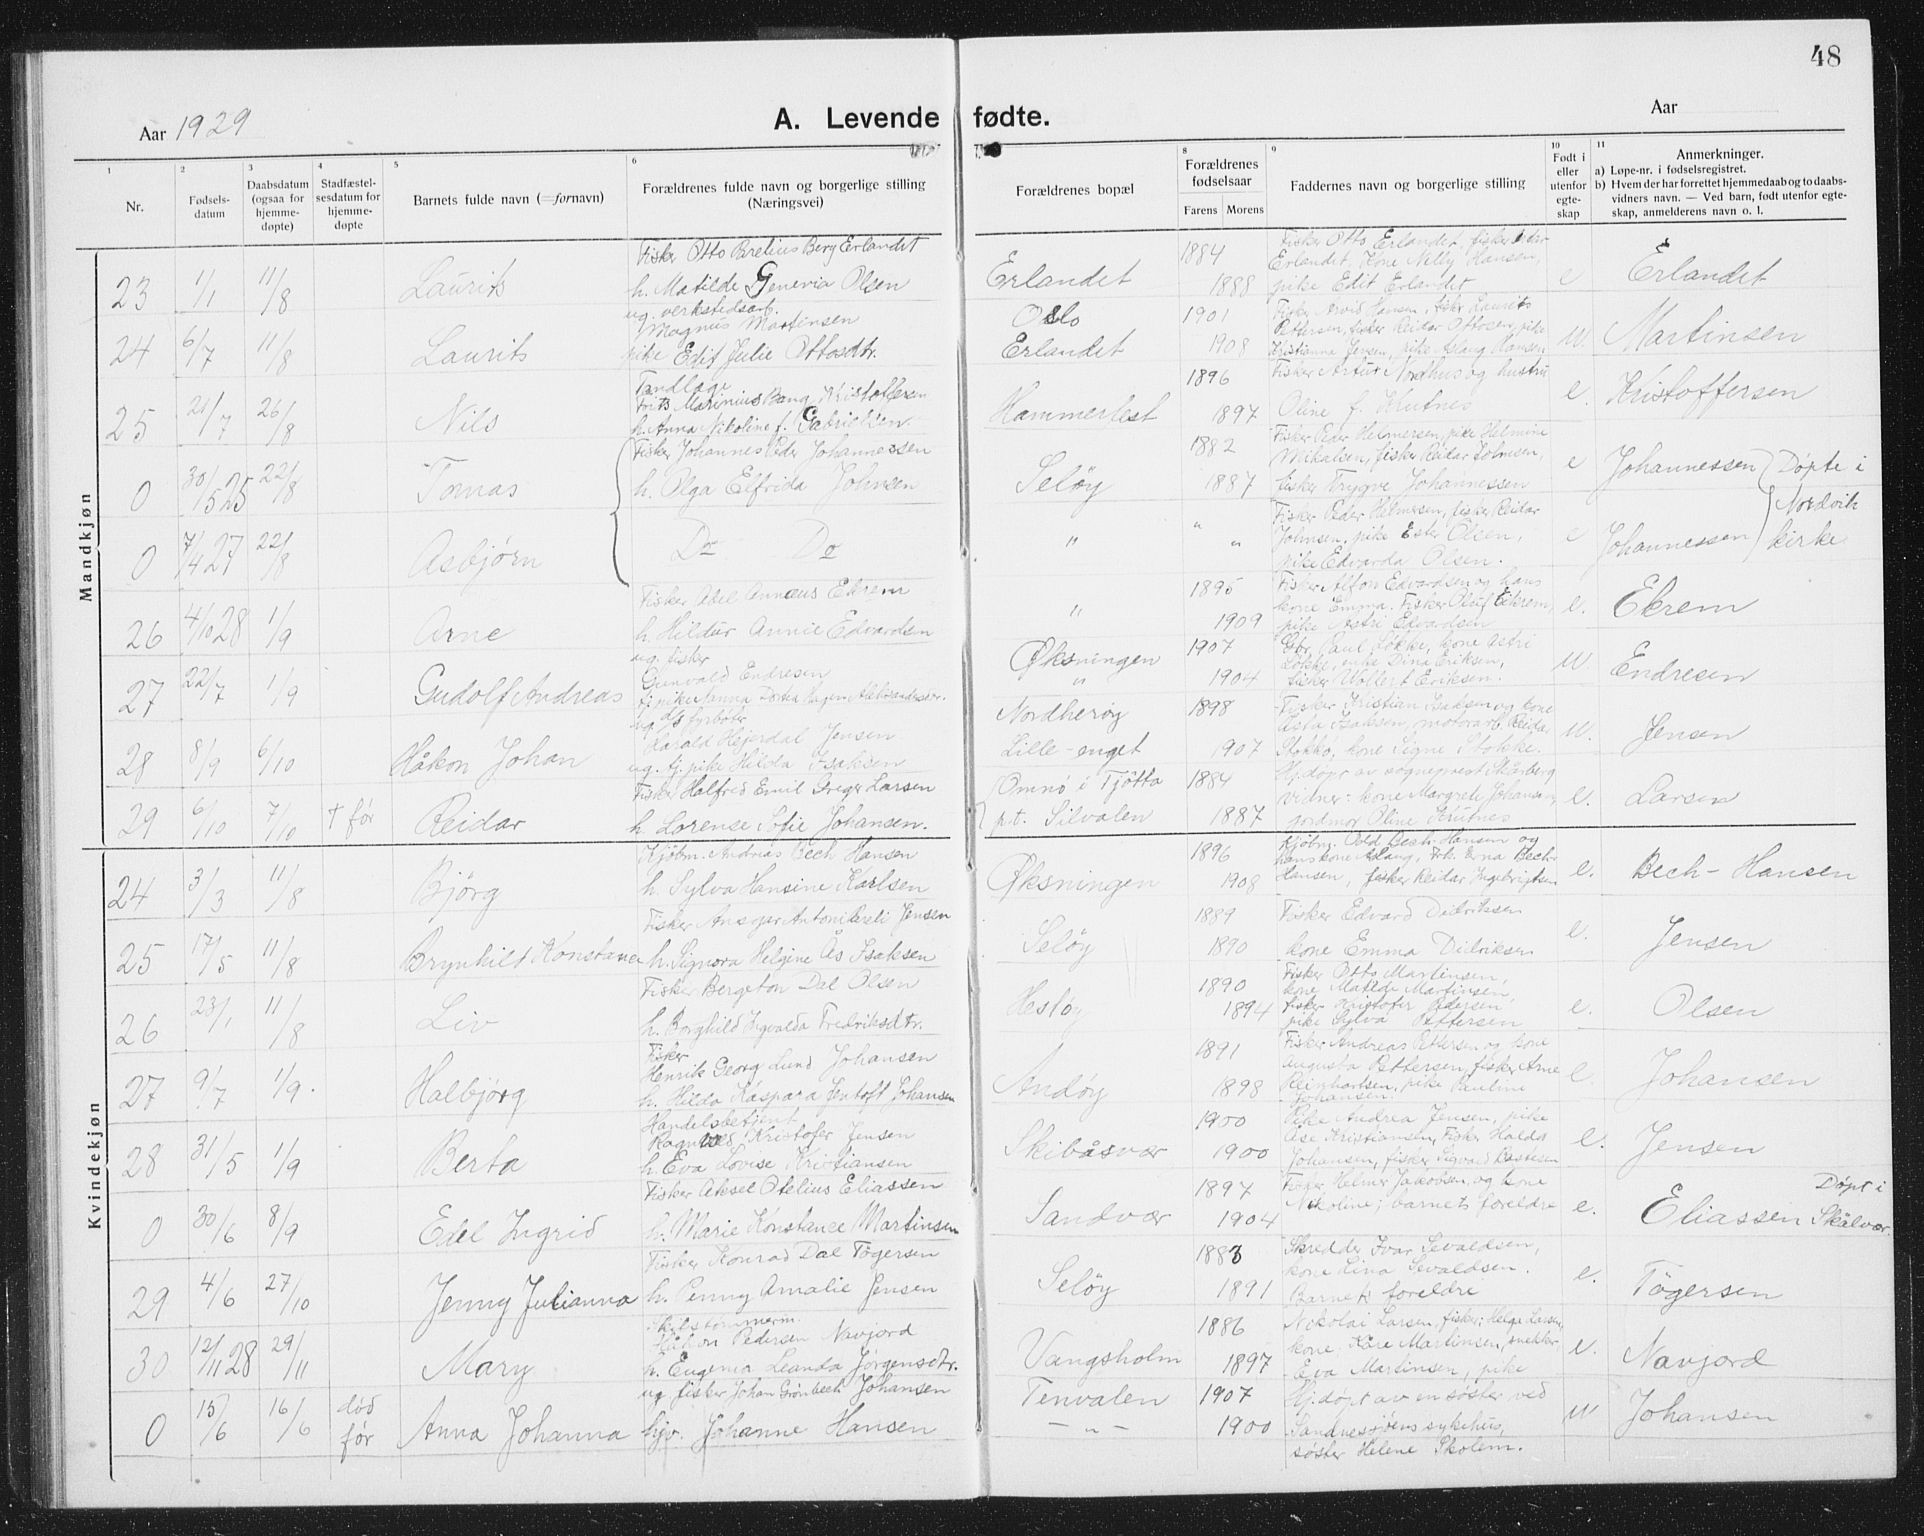 48
Aar 1929
A. Levende fødte.
Aar
1 Nr.
2 Fødsels-datum
3 Daabsdatum (ogsaa for hjemme-døpte)
4 Stadfæstel-sesdatum for hjemme-døpte
5 Barnets fulde navn (=fornavn)
6 Forældrenes fulde navn og borgerlige stilling (Næringsvei)
Forældrenes bopæl
8 Forældrenes fødselsaar
Farens Morens
9 Faddernes navn og borgerlige stilling
10 Født i eller utenfor egte-skap
11 Anmerkninger.
a) Løpe-nr. i fødselsregistret.
b) Hvem der har forrettet hjemmedaab og to daabs-
vidners navn. — Ved barn, født utenfor egte-
skap, anmelderens navn o. l.
Mandkjøn
Fisker Otto Berg Erlandet
23 1/1 11/8 Laurits h. Matilde Genevia Olsen
Erlandet 1884 1888
Fisker Otto Erlandet, fisker
Erlandet, Kone Nelly Hansen,
pike Edit Erlandet
e Erlandet
ug. verkstedsarb.
Magnus Martinsen
24 6/7 11/8 Laurits pike Edit Julie Ottosdtr.
Oslo 1901
Erlandet 1908
Fisker Arvid Hansen, fisker Laurits
Pettersen, fisker Reidar Ottosen, pike
Kristianna Jensen, pike Aslaug Hansen
u. Martinsen
Tandlæge
Frits Marinius Bang Kristoffersen
25 21/7 26/8 Nils h. Anna Nikoline f. Gabrielsen
Hammerfest 1896 1897
Fisker Artur Nordhus og hustru
Oline f. Knutnes
e. Kristoffersen
Fisker Johannes Peder Johannessen
0 30/5 25 22/8 Tomas h. Olga Elfrida Johnsen
Seløy 1882 1887
Fisker Peder Helmersen, pike Helmine
Mikalsen, fisker Reidar Johnsen,
fisker Trygve Johannessen
e Johannessen Døpte i
0 7/4 27 22/8 Asbjørn Do Do
" " "
Fisker Peder Helmersen, fisker Reidar
Johnsen, pike Ester Olsen,
pike Edvarda Olsen.
e Johannessen Nordvik kirke
Fisker Abel Annæus Ekrem
26 4/10 28 1/9 Arne h. Hildur Annie Edvardsen
" 1895 1909
Fisker Alfon Edvardsen og hans
kone Emma. Fisker Oluf Ekrem,
pike Astri Edvardsen
e. Ekrem
ug. fisker
Gunvald Endresen
27 22/7 1/9 Gudolf Andreas
Øksningen 1907
" 1904
Gbr. Paul Løkke, kone Astri
Løkke, enke Dina Eriksen,
fisker Wollert Eriksen.
u. Endresen
ug. d/s fyrbøter
Harald Hejerdal Jensen
28 8/9 6/10 Håkon Johan ug. tj. pike Hilda Isaksen
Nordherøy 1898
Lille-enget 1907
Fisker Kristian Isaksen og kone
Asta Isaksen, motorarb. Reidar
Stokko, kone Signe Stokke.
u. Jensen
Fisker Halfred Emil Greger Larsen
29 6/10 7/10 † før Reidar h. Lorense Sofie Johansen.
Omnø i Tjøtta 1884
p.t. Silvalen 1887
Hj.døpt av sogneprest Skårberg
vidner: kone Margrete Johansen,
jordmor Oline Knutnes
e. Larsen
Kvindekjøn
Kjøbm. Andreas Bech Hansen
24 3/3 11/8 Bjørg h. Sylva Hansine Karlsen
Øksningen 1896 1908
Kjøbm. Odd Bech-Hansen og
hans kone Aslaug, frk. Erna Bech-
Hansen, fisker Reidar Ingebrigtsen
e. Bech-Hansen
Fisker Ansgar Anton Jensen
25 17/5 11/8 Brynhild Konstanse h. Signora Helgine Ås Isaksen
Seløy 1889 1890
Fisker Edvard Didriksen
kone Emma Didriksen
e. Jensen
Fisker Bergeton Dal Olsen
26 23/1 11/8 Liv h. Borghild Ingvalda Fredriksdtr.
Hestøy 1890 1894
Fisker Otto Martinsen
kone Matilde Martinsen
fisker Kristofer Pedersen
pike Sylva Pettersen
e. Olsen
Fisker
Henrik Georg Lund Johansen
27 9/7 1/9. Halbjørg h. Hilda Kaspara Jentoft Johansen
Andøy 1891 1898
Fisker Andreas Pettersen og kone
Augusta Pettersen, fisker Arne
Reinhartsen, pike Pauline
Johansen.
e. Johansen
Handelsbetjent
Ragnvald Kristofer Jensen
28 31/5 1/9 Berta h. Eva Lovise Kristiansen
Skibåsvær 1900 1900
Pike Andrea Jensen, pike
Åse Kristiansen, Fisker Haldo
Johansen, fisker Sigvald
e. Jensen
Fisker Aksel Otelius Eliassen
0 30/6 8/9 Edel Ingrid h. Marie Konstance Martinsen
Sandvær 1897 1904
Fisker Helmer Jakobsen, og kone
Nikoline; barnets foreldre
e. Eliassen Døpt i Skålvær.
Fisker Konrad Dal Tøgersen
29 4/6 27/10 Jenny Julianna h. Penny Amalie Jensen
Seløy 1883 1891
Skredder Ivar Sevaldsen,
kone Lina Sevaldsen.
Barnets foreldre
e. Tøgersen
Skibstømmerm.
Håkon Pedersen Navjord
30 12/11 28 29/11 Mary h. Eugenia Leanda Jørgensdtr.
Vangsholm 1886 1897
Nikolai Larsen, fisker; Helga Larsen,
kone; Kåre Martinsen, snekker
Eva Martinsen, pike
e. Navjord
ug. fisker Johan Grønbech Johansen
0 15/6 16/6 død før Anna Johanna hjv. Johanne Hansen
Tenvalen 1907
— " — 1900
Hj.døpt av en søster ved
Sandnesjøens sykehus,
søster Helene Skolem.
u Johansen